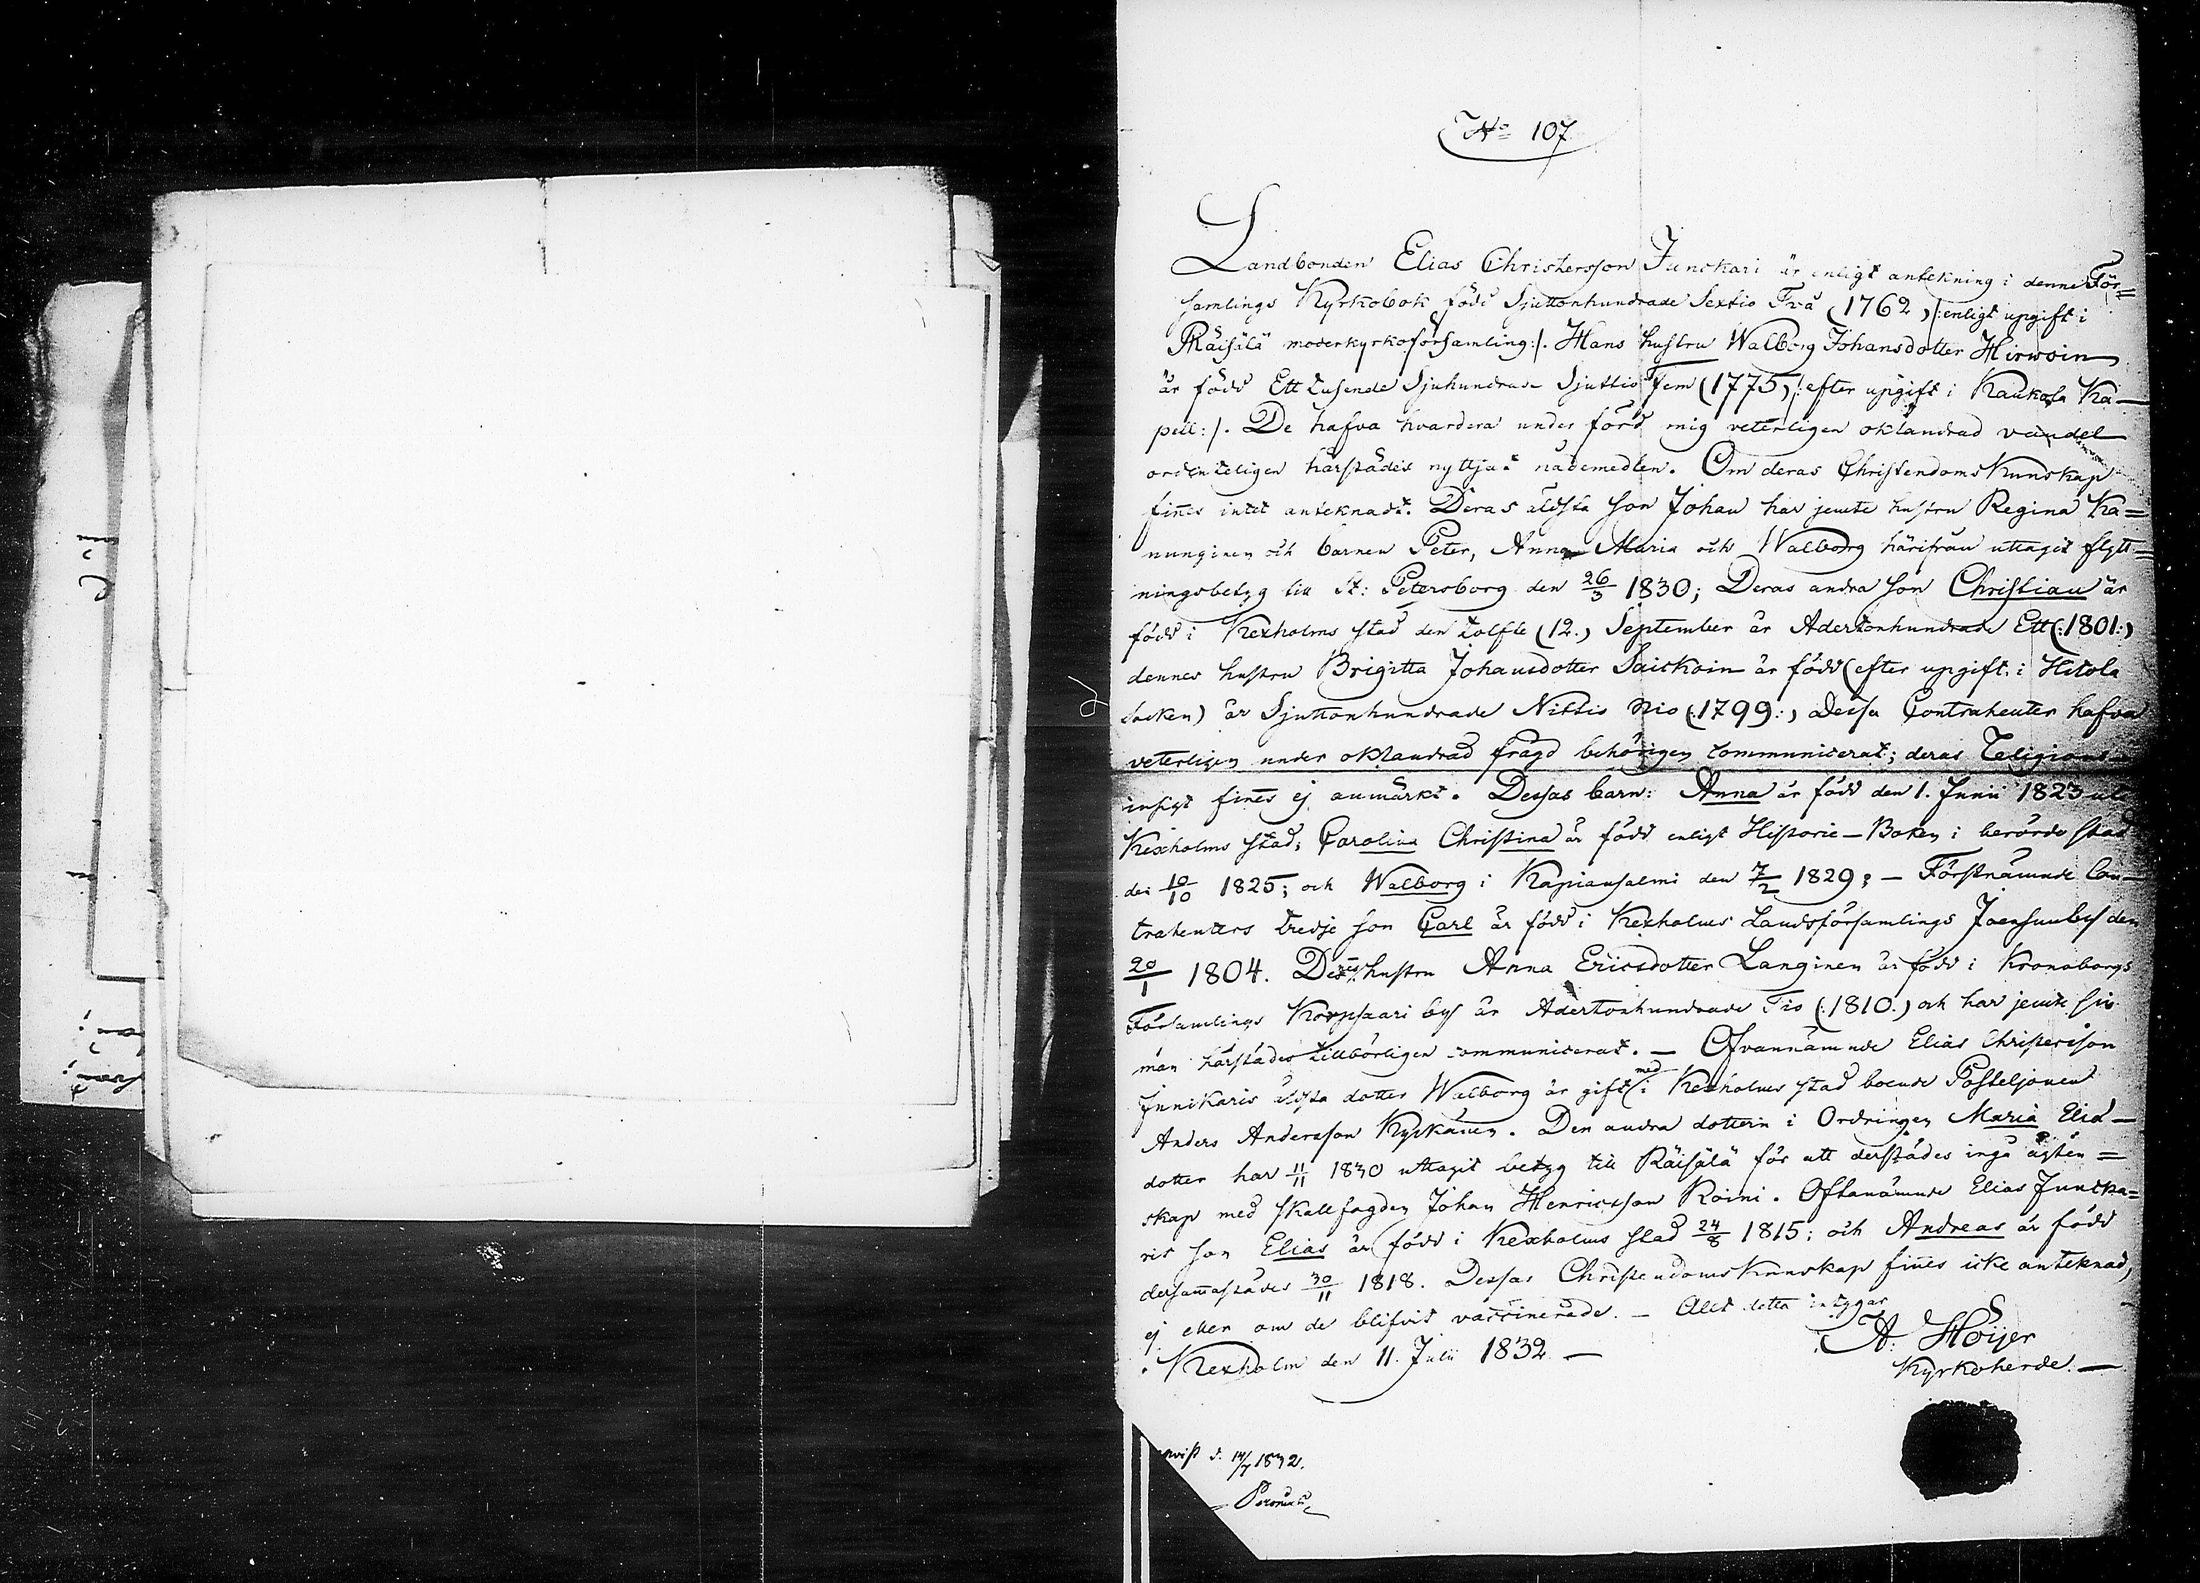 No 107
Landbonden Elias Christersson Junckari är enligt antekning i denne För=
samlings Kyrkobok född Sjuttonhundrade Sextio Två (1762) /: enligt upgift i
Räisälä moderkyrkoförsamling :/. Hans hustru Walborg Johansdotter Hirwoin
är född Ett tusende Sjuhundrade Sjuttio Fem (1775) /: efter upgift i Kaukola Ka-
pell :/. De hafva hvardera under förd mig veterligen oklandrad vandel
ordenteligen härstädes nyttjat nådemedlen. Om deras Christendoms Kunskap
fines intet anteknadt. Deras äldsta son Johan har jemte hustru Regina Ka=
nunginen och barnen Peter, Anna Maria och Walborg härifrån uttagit flytt=
ningsbetyg till St: Petersborg den 26/3 1830; Deras andra son Christian är
född i Kexholms stad den tolfte (12.) September år Adertonhundrade Ett (:1801:)
dennes hustru Brigitta Johansdotter Saickoin är född (efter upgift i Hitola
Socken) år Sjuttonhundrade Nittio Nio (:1799:) Dessa Contrahenter hafva
veterligen under oklandrad frägd behörigen communicerat; deras Religions-
insigt fines ej anmärkt. Dessas barn: Anna är född den 1. Junii 1823 uti
Kexholms stad; Carolina Christina är född enligt Historie-Boken i berörde stad
den 10/10 1825; och Walborg i Kapiansalmi den 7/2 1829; - Förstnämnde Con-
trahenters tredje son Carl är född i Kexholms Landsförsamlings Joensuu by den
20/1 1804. Dess hustru Anna Ericsdotter Langinen är född i Kronoborgs
Församlings Korpsaari by år Adertonhundrade Tio (:1810:) och har jemte sin
man härstädes tillbörligen communicerat. - Ofvannämnde Elias Christersson
Junikaris äldsta dotter Walborg är gift med i Kexholms stad boende Posteljonen
Anders Andersson Kyckänen. Den andra dottern i Ordningen Maria Elias-
dotter har 11/11 1830 uttagit betyg till Räisälä för att derstädes ingå ägten=
skap med skallfogden Johan Henricsson Roini. Oftanämnde Elias Juncka=
ris son Elias är född i Kexholms stad 24/8 1815; och Andreas är född
dersamastädes 30/11 1818. Dessas Christendoms Kunskap fines icke anteknad,
ej eller om de blifvit vaccinerade. - Allt detta intygar
Kexholm den 11. Julii 1832 -
A. Höijer
Kyrkoherde. -
d. 14/7 1832.